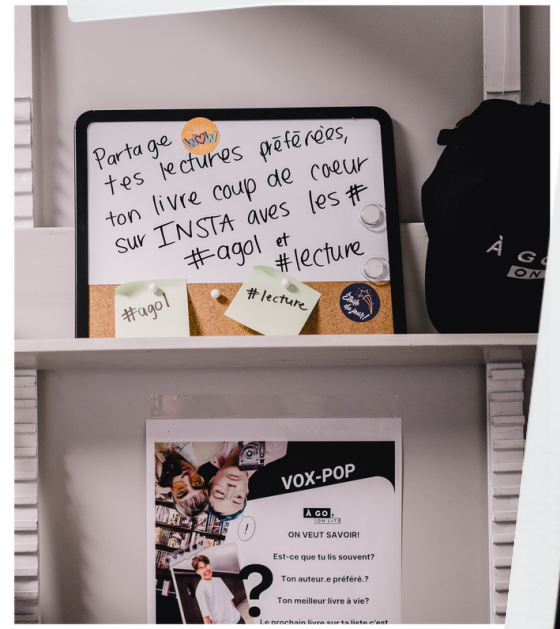 WOW
Partage
tes lectures préférées,
ton livre coup de coeur
sur INSTA aves les #
#agol et
#lecture
#agol
#lecture
Étoile
du jour!
À GO
ON
VOX-POP
À GO,
ON LIT!
ON VEUT SAVOIR!
Est-ce que tu lis souvent?
Ton auteur.e préféré.?
Ton meilleur livre à vie?
Le prochain livre sur ta liste c'est